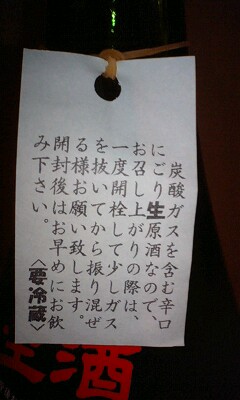 炭酸ガスを含む辛口
にごり生原酒なので、
お召し上がりの際は、
一度開栓して少しガス
を抜いてから振り混ぜ
る様お願い致します。
開封後はお早めにお飲
み下さい。
〈要冷蔵〉
生酒